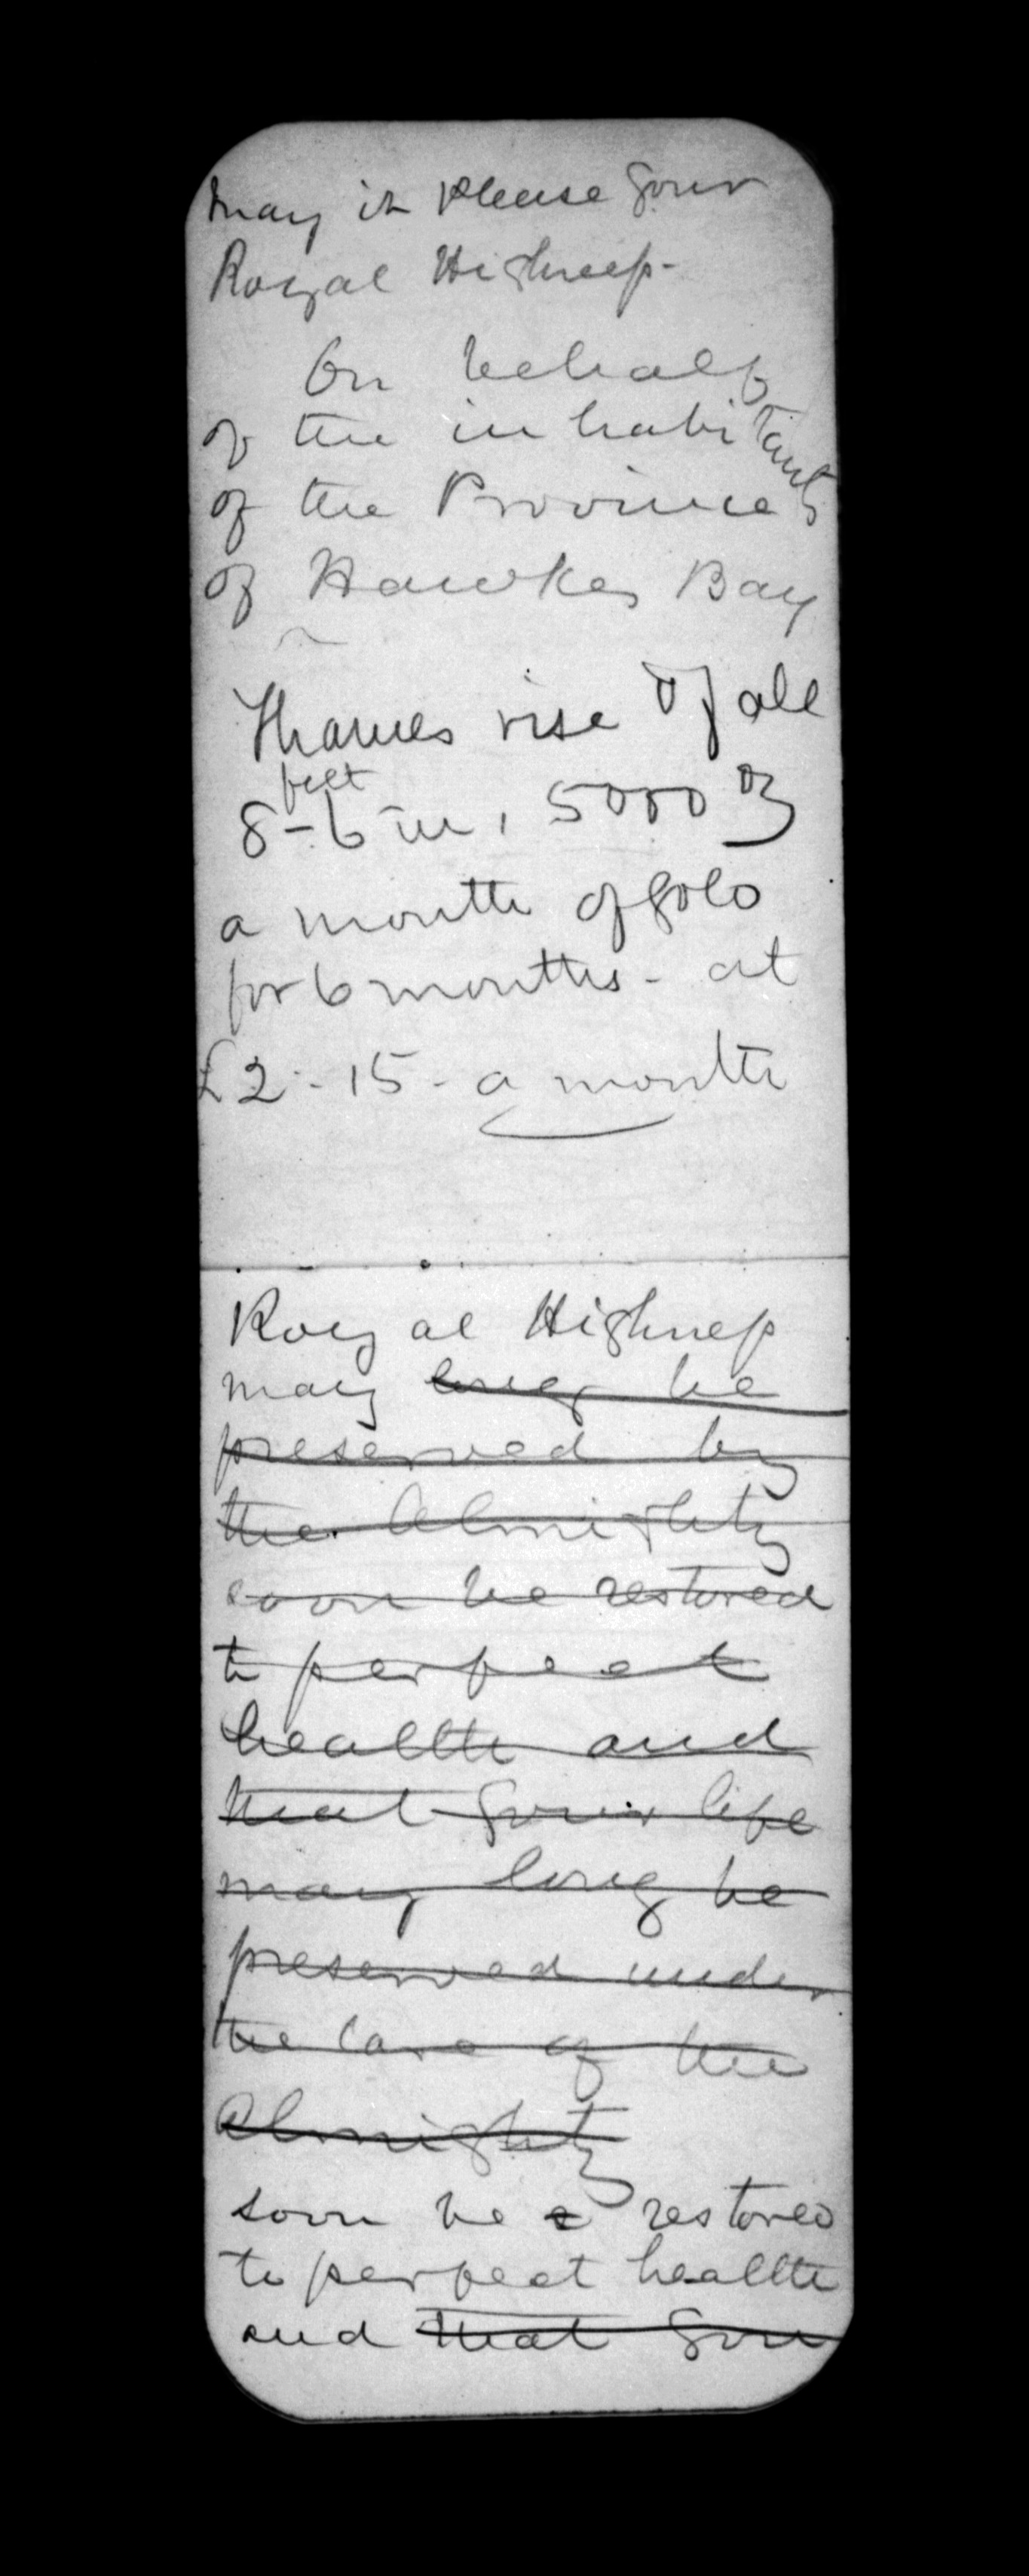 May it Please Your
Royal Highness -
On behalf
of the inhabitants
of the Province
of Hawkes Bay
Thames rise of all
feet
8 - 6 in, 5000 oz
a month of gold
for 6 months - at
£2 - 15 - a month
Royal Highness
may long be
preserved by
the Almighty
soon be restored
to perfect
health and
that your life
may long be
preserved under
the care of the
Almighty
soon be restored
to perfect health
and that your